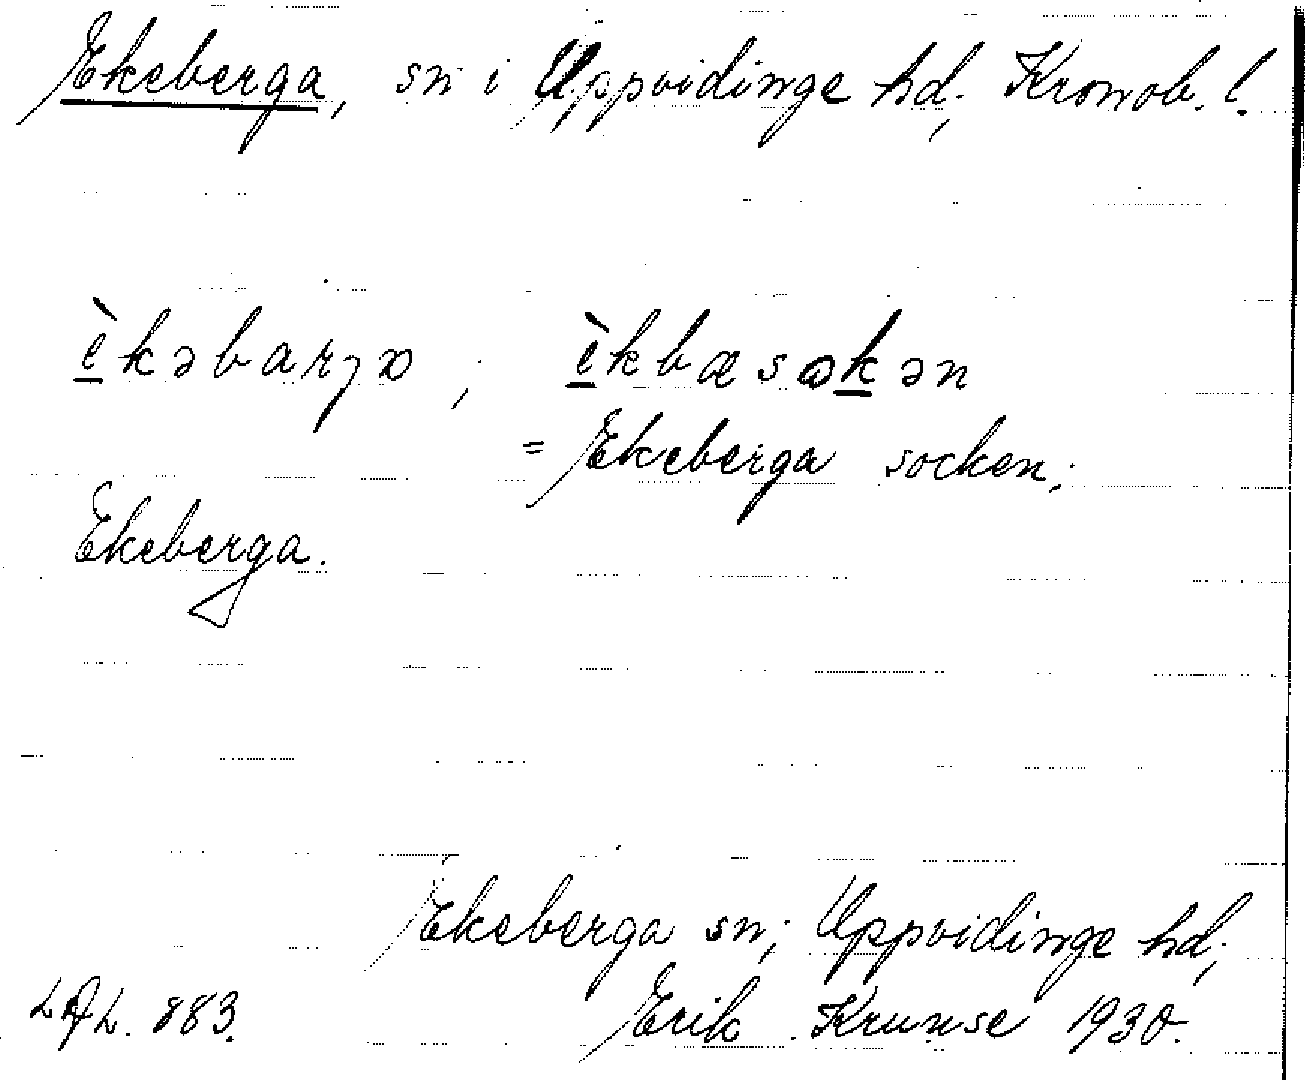 Ekeberga, sn i Uppvidinge hd; Kronob. l.
è̲kəbarȷɔ ; è̲kbæsɷk̲ən
= Ekeberga socken;
Ekeberga.
Ekeberga sn; Uppvidinge hd;
LAL. 883. Erik Krunse 1930.